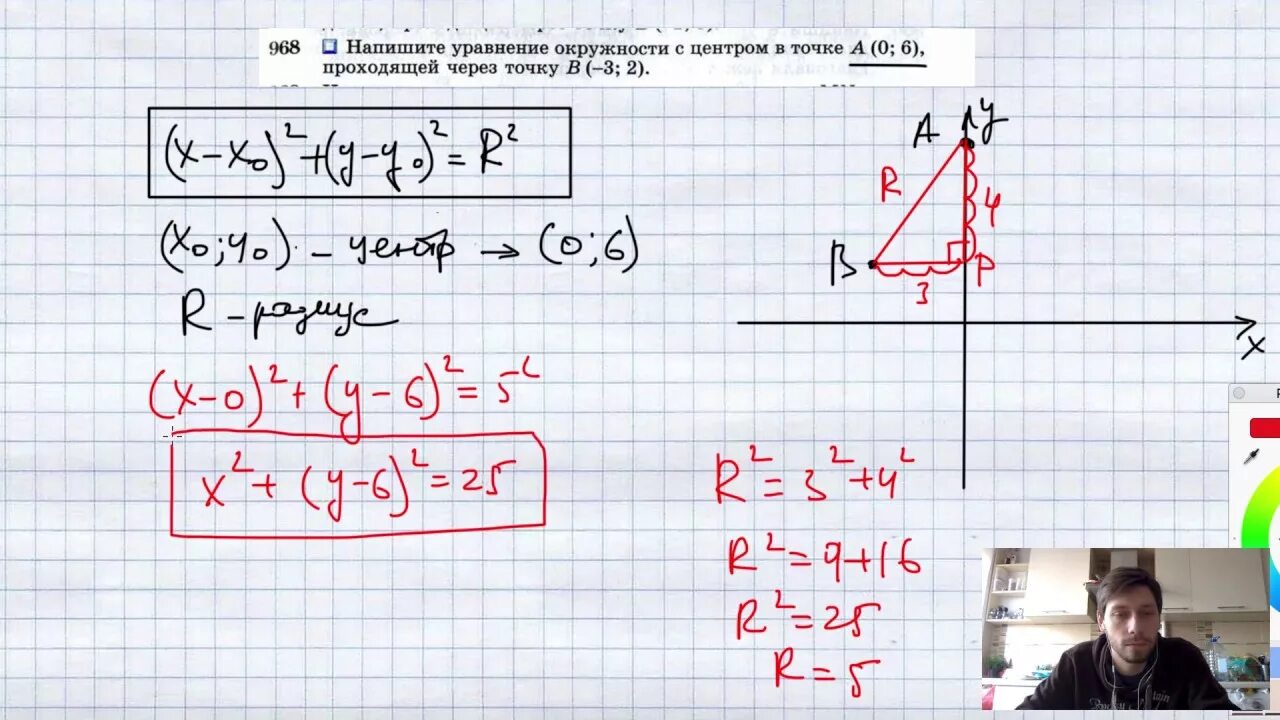 968 Напишите уравнение окружности с центром в точке A (0; 6),
проходящей через точку B (–3; 2).
(x-x₀)²+(y-y₀)²=R²
(x₀;y₀) - центр → (0;6)
R - радиус
(x-0)²+(y-6)²=5²
x²+(y-6)²=25
A y
R 4
B P
3
x
R²=3²+4²
R²=9+16
R²=25
R=5